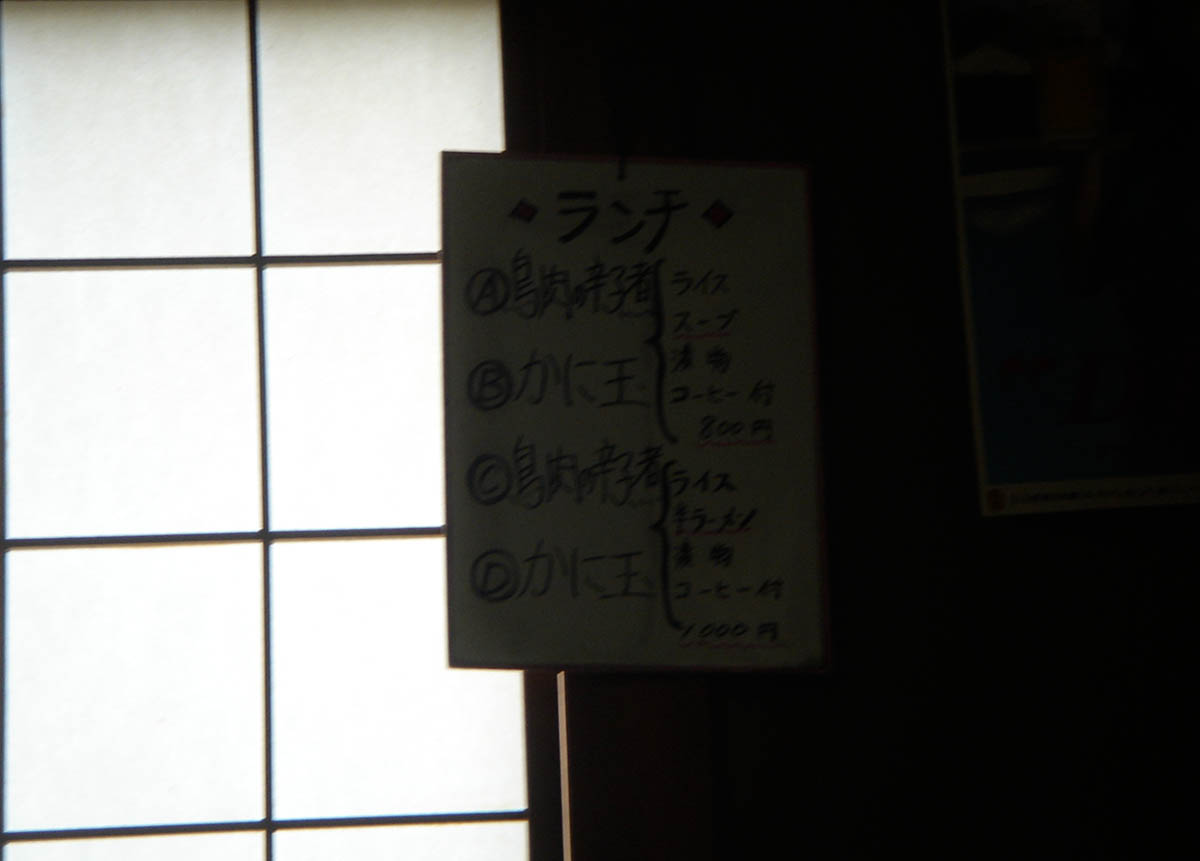 ◆ランチ◆
Ⓐ鳥肉の辛子煮
Ⓑかに玉
ライス
スープ
漬物
コーヒー付
800円
Ⓒ鳥肉の辛子煮
Ⓓかに玉
ライス
半ラーメン
漬物
コーヒー付
1000円